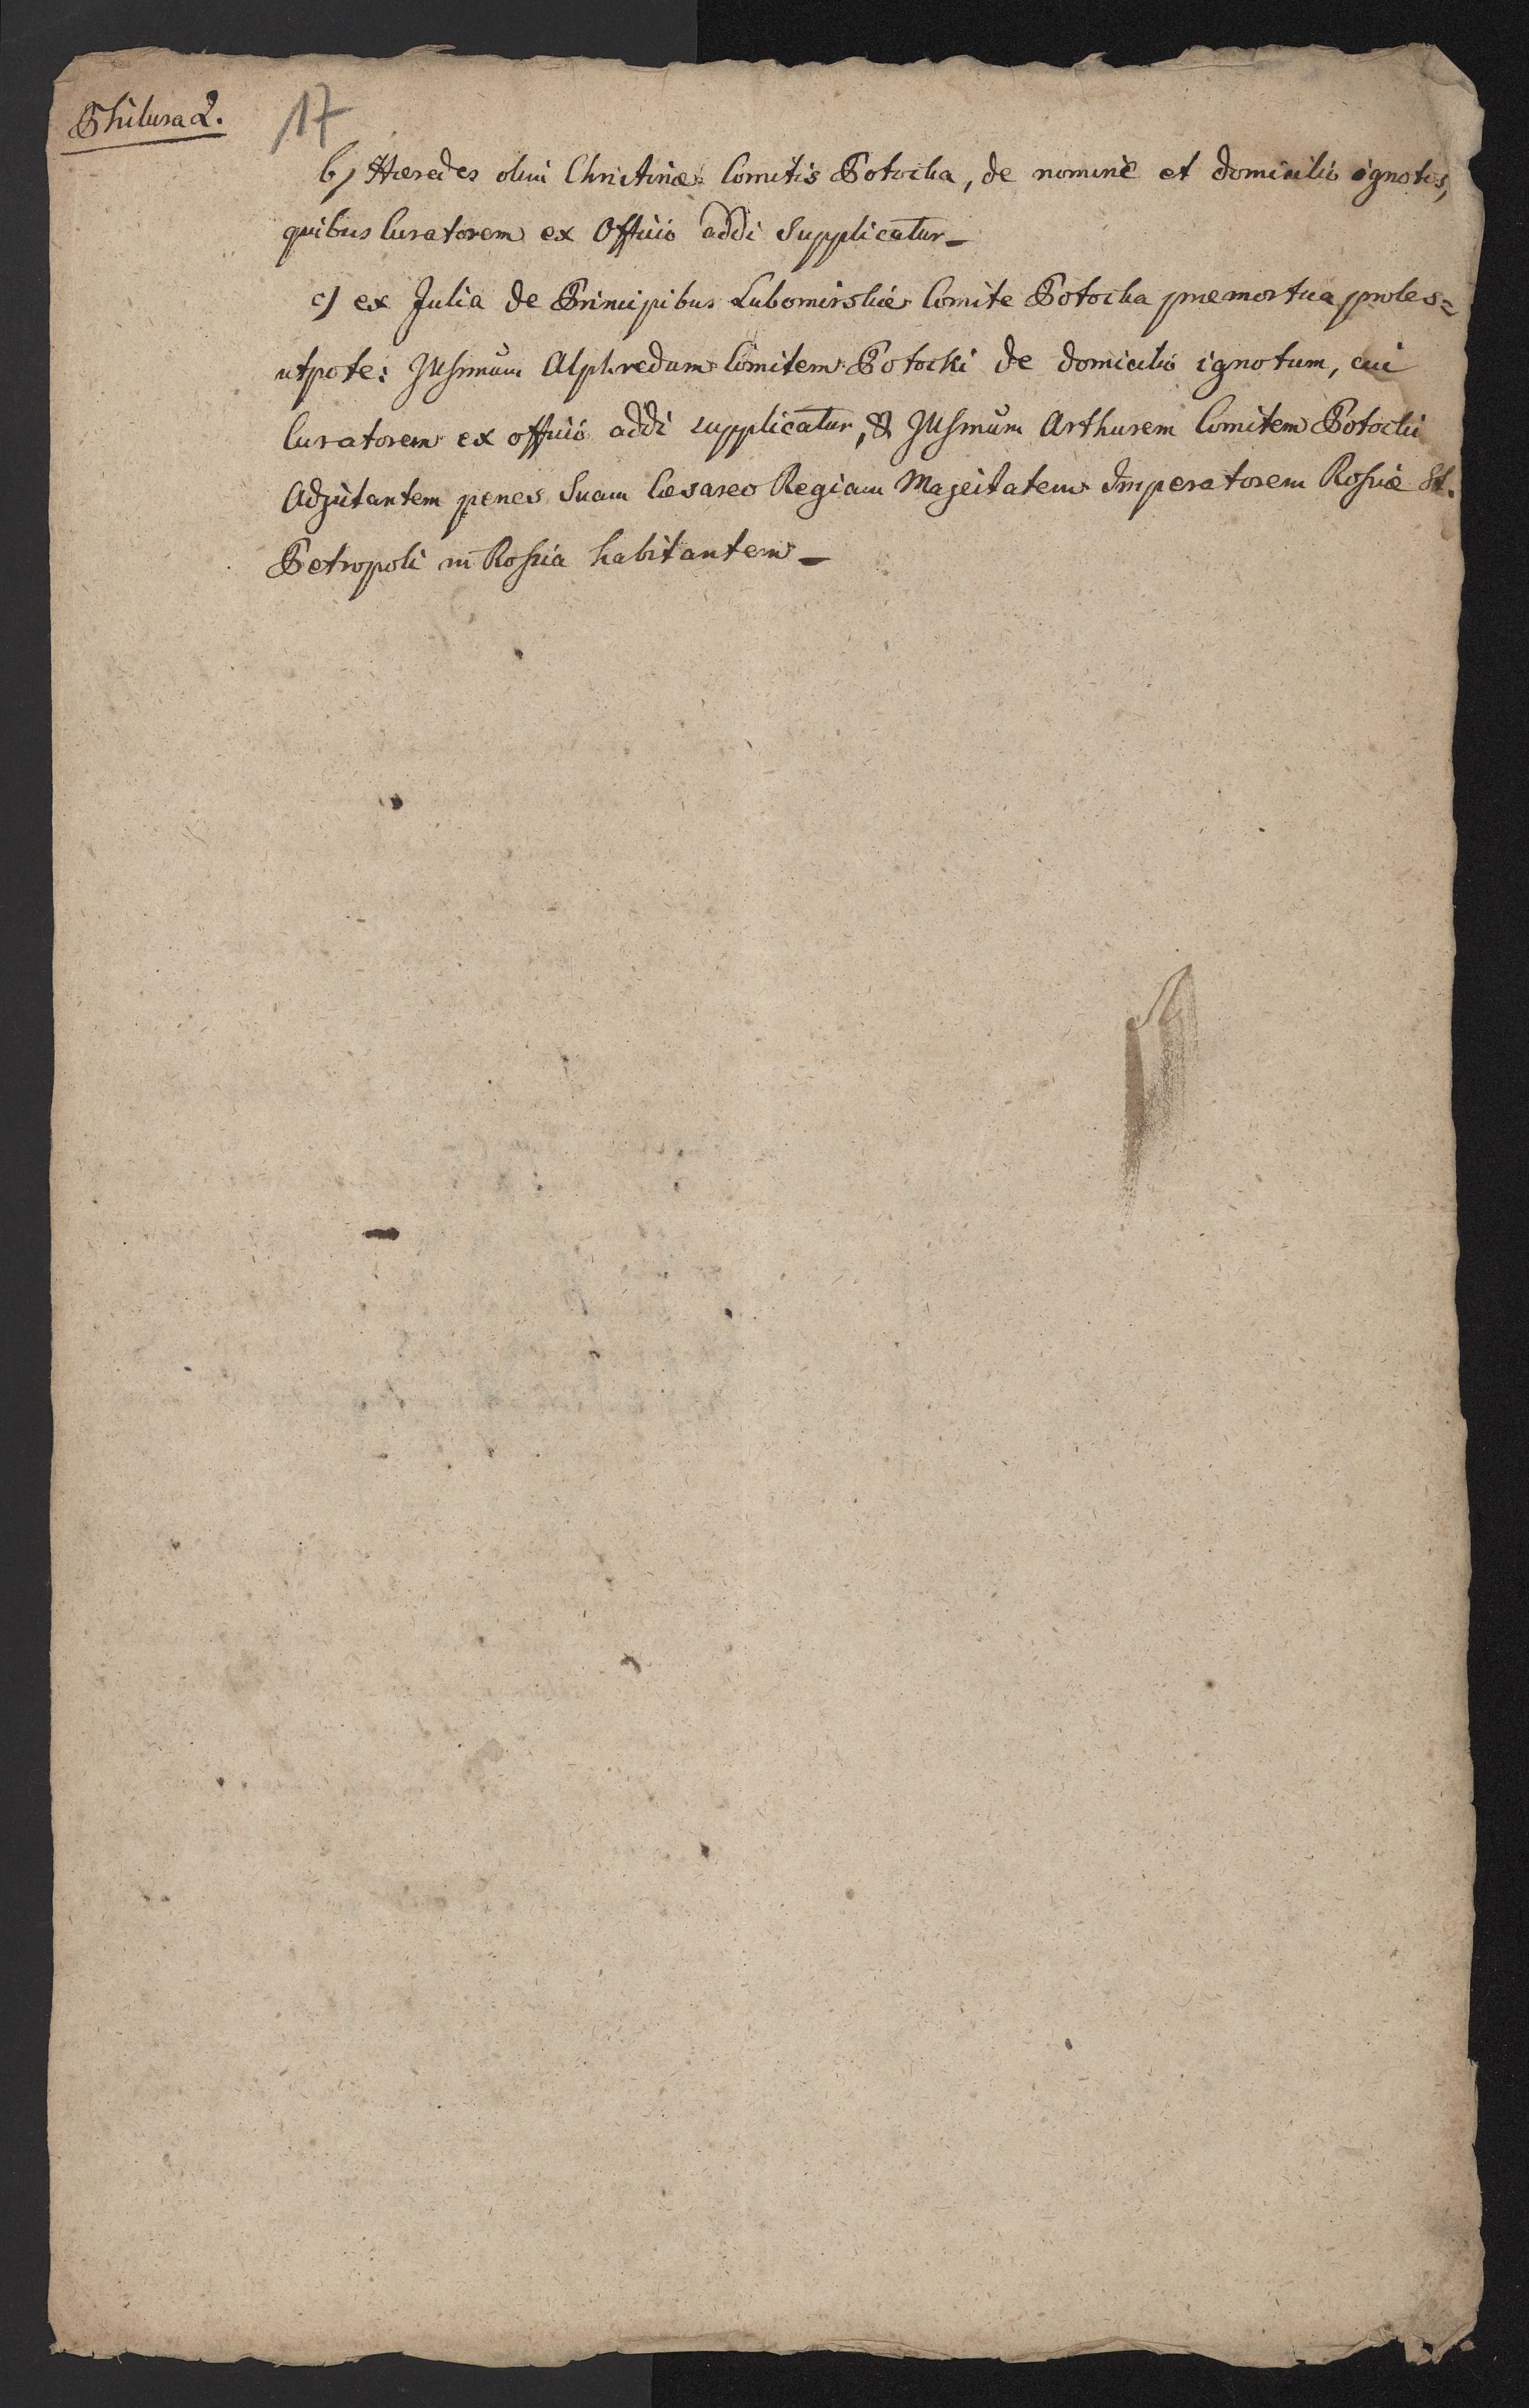 Philura 2.
17
b) Hæredes olim Christinæ Comitis Potocka, de nomine et domicilio ignotos,
quibus Curatorem ex Officio addi supplicatur –
c) ex Julia de Principibus Lubomirskie Comite Potocka præmortua proles=
utpote: Illsmum Alphredum Comitem Potocki de domicilio ignotum, cui
Curatorem ex officio addi supplicatur, & Illsmum Arthurem Comitem Potocki
Adjutantem penes Suam Cæsareo Regiam Majestatem Imperatorem Rossiæ St.
Petropoli in Rossia habitantem –